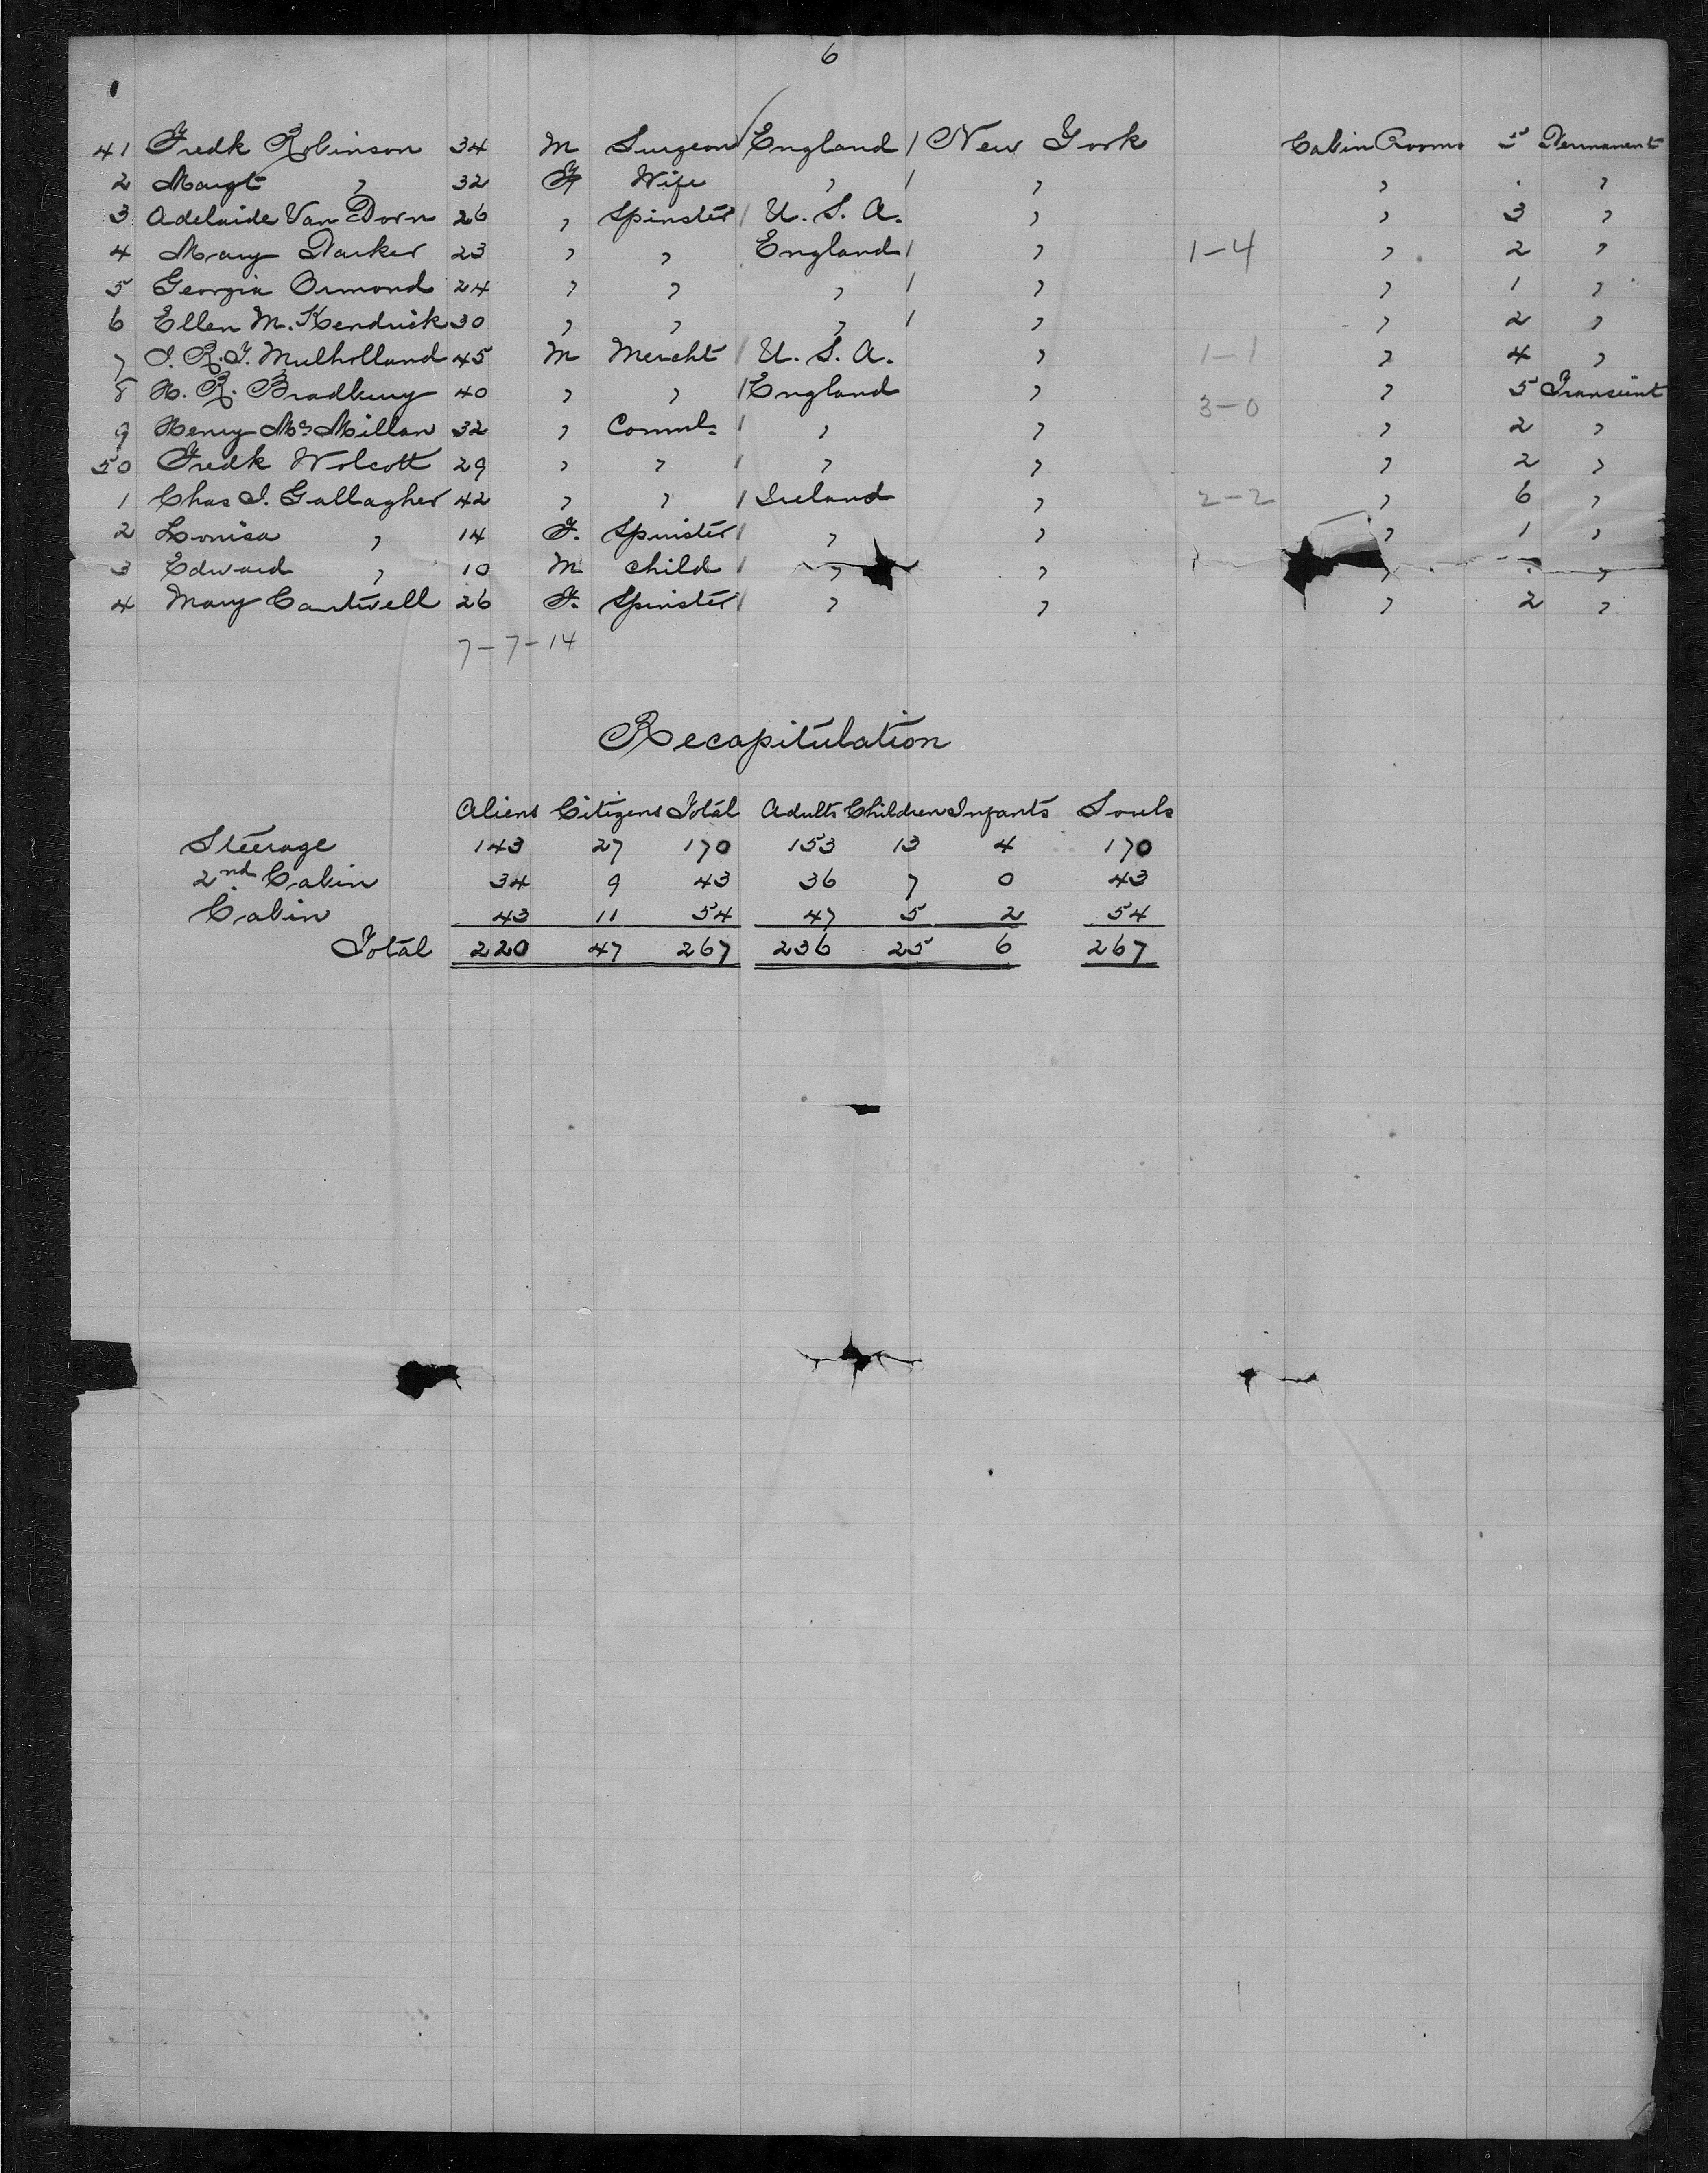 6
41 Fredk Robinson 34 M Surgeon England / New York Cabin Rooms 5 Permanent
2 Margt " 32 F Wife " / " " . "
3 Adelaide Van Dorn 26 " Spinster / U. S. A. " " 3 "
4 Mary Parker 23 " " England / " 1-4 " 2 "
5 Georgia Ormond 24 " " " / " " 1 "
6 Ellen M. Kendrick 30 " " " / " " 2 "
7 J. R. J. Mulholland 45 M Mercht / U. S. A. " 1-1 " 4 "
8 H. R. Bradbury 40 " " / England " 3-0 " 5 Transient
9 Henry Mc Millan 32 " Comml. / " " " 2 "
50 Fredk Wolcott 29 " " / " " " 2 "
1 Chas J. Gallagher 42 " " / Ireland " 2-2 " 6 "
2 Louisa " 14 F. Spinster / " " " 1 "
3 Edward " 10 M Child / " " " . "
4 Mary Cantwell 26 F. Spinster / " " " 2 "
7-7-14
Recapitulation
Aliens Citizens Total Adults Children Infants Souls
Steerage 143 27 170 153 13 4 170
2nd Cabin 34 9 43 36 7 0 43
Cabin 43 11 54 47 5 2 54
Total 220 47 267 236 25 6 267